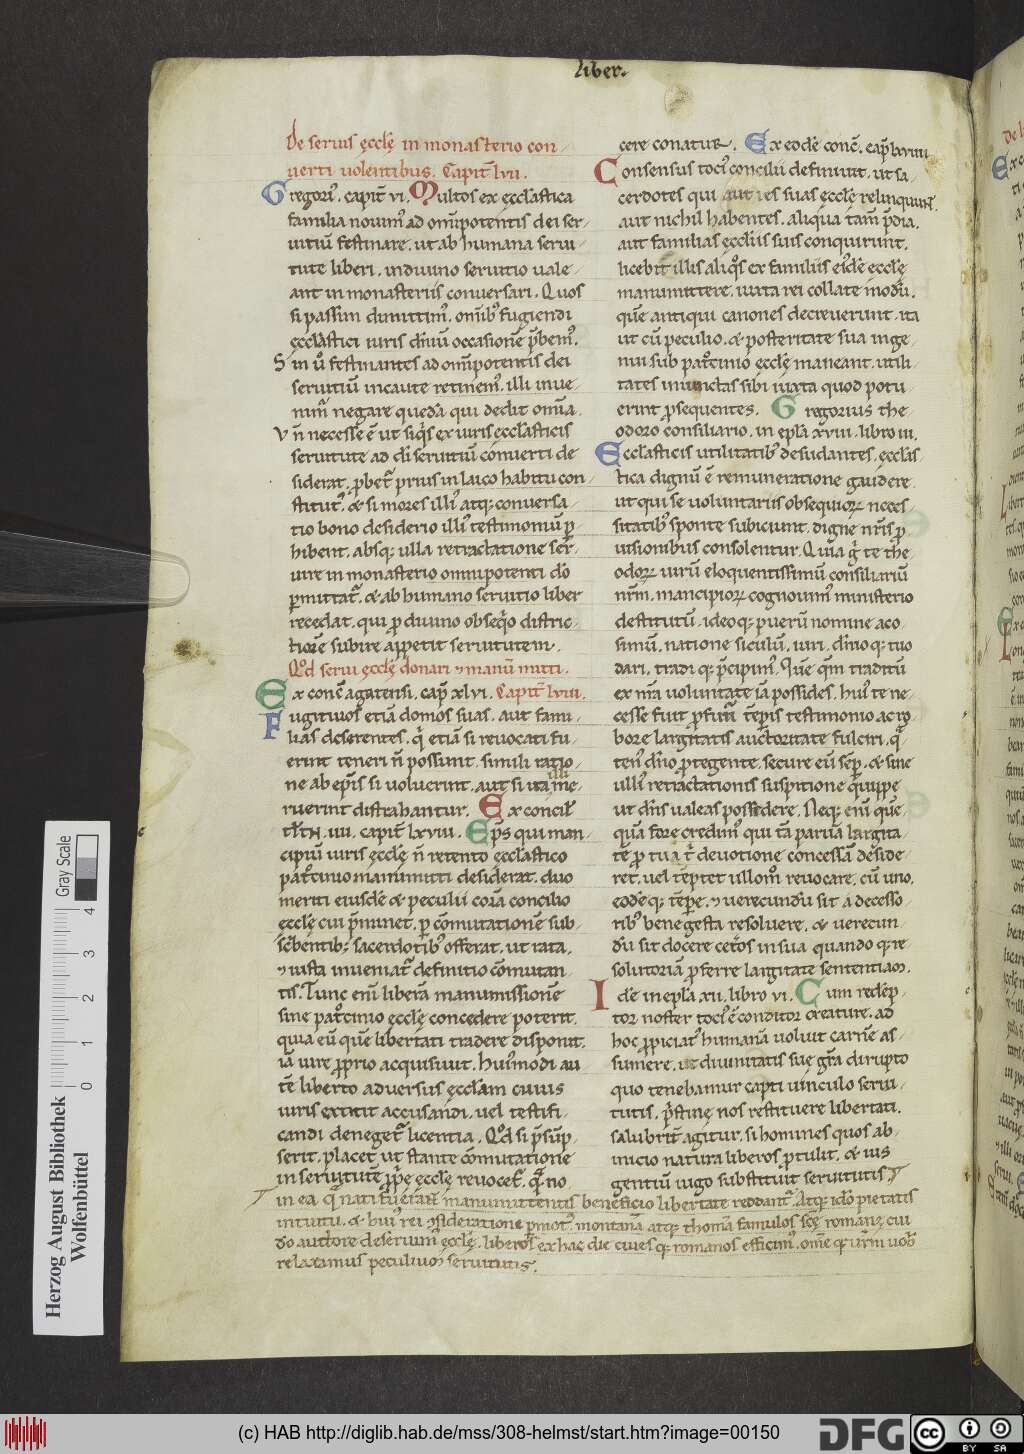 liber.
De seruis ęcclę in monasterio con-
uerti uolentibus. Capit̄ lvii.
Gregori᷒. capit̄ vi. Multos ex ęcclastica
familia nouim᷒ ad om̄ipotentis dei ser-
uitiū festinare. ut ab humana serui-
tute liberi. in diuino seruitio uale-
ant in monasteriis conuersari. Quos
si passim dimittim᷒. omib᷒ fugiendi
ęcclastici iuris dn̄iū occasionē p̄bem᷒.
Sin ū festinantes ad om̄ipotentis dei
seruitiū incaute retinem᷒. illi inue-
nim̄ negare quędā qui dedit om̄ia.
Vn̄ necesse ē ut siq̄s ex iuris ęcclasticis
seruitute ad di seruitiū conuerti de-
siderat. pbet̄ prius in laico habitu con-
stitut᷒. & si mores illi᷒ atq; conuersa-
tio bono desiderio illi᷒ testimoniū p-
hibent. absq; ulla retractatione ser-
uire in monasterio omnipotenti do
pmittat̄. & ab humano seruitio liber
recedat. qui p diuino obseqo distric-
tiorē subire appetit seruitutem.
Qd serui ęcclę donari ⁊ manū mitti.
Ex conc̄ agatensi. cap̄ xlvi. Capit̄ lviii.
Fugitiuos etiā domos suas. aut fami-
lias deserentes. q̄ etiā si reuocati fu-
erint teneri n̄ possunt. simili ratio-
ne ab ep̄is si uoluerint. aut si ita illi me-
ruerint distrahantur. Ex concil̄
tl̄tn. iiii. capit̄ lxviii. Ep̄s qui man-
cipiū iuris ęcclę n̄ retento ęcclastico
pat̄cinio manumitti desiderat. duo
meriti eiusdē & peculii corā concilio
ęcclę cui p̄minet. p cōmutationē sub-
sc̄bentib; sacerdotib᷒ offerat. ut rata.
⁊ iusta inueniat̄ definitio cōmutan-
tis. Tunc eni liberā manumissionē
sine pat̄cinio ęcclę concedere poterit.
quia eū quē libertati tradere disponit.
iā iure pprio acquisiuit. Hui᷒modi au-
tē liberto aduersus ęcclam cuius
iuris extitit accusandi. uel testifi-
candi deneget̄ licentia. Qd si p̄sūp-
serit. placet ut stante cōmutatione
in seruitutē pp̄ę ęcclę reuocet̄. q̄ no-
cere conatur. Ex eodē conc̄. cap̄ lxviiii
Consensus toci᷒ concilii definiuit. ut sa-
cerdotes qui aut res suas ecclę relinquunt̄.
aut nichil habentes. aliqua tam̄ p̄dia.
aut familias ęccliis suis conquirunt.
licebit illis aliqos ex familiis ei᷒dē ecclę
manumittere. iuxta rei collate modū.
quē antiqui canones decreuerunt. ita
ut cū peculio. & posteritate sua inge-
nui sub pat̄cinio ęcclę maneant. utili-
tates iniunctas sibi iuxta quod potu-
erint psequentes. Gregorius the-
odoro consiliario. in epl̄a xviii. libro iii.
Ecclasticis utilitatib᷒ desudantes. ęcclas-
tica dignū ē remuneratione gaudere.
ut qui se uoluntariis obsequioꝝ neces-
sitatib᷒ sponte subiciunt. digne nr̄is p-
uisionibus consolentur. Quia g̊ te the-
odoꝝ uirū eloquentissimū consiliariū
nr̄m. mancipioꝝ cognouim᷒ ministerio
destitutū. ideoq; puerū nomine aco-
simū. natione siculū. iuri. dn̄ioq; tuo
dari. tradiq; p̄cipim᷒. Quē qm̄ traditū
ex nr̄a uoluntate iā possides. hui᷒ te ne-
cesse fuit pfuturi tēpis testimonio ac ro-
bore largitatis auctoritate fulciri. q̄-
ten᷒ dn̄o ptegente. secure eū sēp. & sine
ulli᷒ retractationis suspitione quippe
ut dn̄s ualeas possidere. Neq; eni que-
quā fore credim᷒ qui tā paruā largita-
tē p tua t̄ deuotione concessā deside-
ret. uel tēptet ullom̊ reuocare. cū uno.
eodēq; tēpe. ⁊ uerecundū sit a decesso-
rib᷒ bene gesta resoluere. & uerecun-
dū sit docere cetos in sua quandoq; re-
solutoriā pferre largitate sententiam.
Idē in epl̄a xii. libro vi. Cum redēp-
tor noster toci᷒ ē conditor creature. ad
hoc ppiciat᷒ humanā uoluit carnē as-
sumere. ut diuinitatis suę gr̄a dirupto
quo tenebamur capti uinculo serui-
tutis. p̄stinę nos restituere libertati.
salubrit̄ agitur. si homines quos ab
inicio natura liberos ptulit. & ius
gentiū iugo substituit seruitutis.
in ea q̄ nati fuerant manumittentis beneficio libertate reddant̄. Atq; ido pietatis
intuitu. & hui᷒ rei ꝯsideratione pmoti. montanā atq; thomā famulos scę romanę cui
do auctore deseruim᷒ ęcclę. liberos ex hac die ciuesq; romanos efficim᷒. omēq; urm uob᷒
relaxamus peculium seruitutis.
Herzog August Bibliothek
Wolfenbüttel
Gray Scale
0 1 2 3 4
(c) HAB http://diglib.hab.de/mss/308-helmst/start.htm?image=00150
DFG
cc BY SA